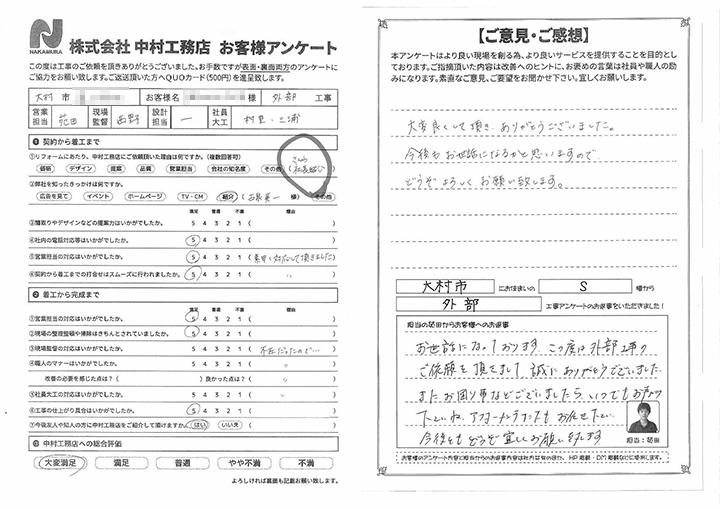 NAKAMURA
株式会社 中村工務店 お客様アンケート
この度は工事のご依頼を頂きありがとうございました。お手数ですが表面・裏面両方のアンケートに
ご協力をお願い致します。ご返送頂いた方へQUOカード(500円)を進呈致します。
大村 市
お客様名
様
外部 工事
営業担当
現場監督 西野
設計担当 ー
社員大工 村里・三浦
❶ 契約から着工まで
①リフォームにあたり、中村工務店にご依頼頂いた理由は何ですか。(複数回答可)
価格 デザイン 提案 品質 営業担当 会社の知名度 その他
②弊社を知ったきっかけは何ですか。
広告を見て イベント ホームページ TV・CM 紹介 ( 様) その他
満足 普通 不満 理由
③間取りやデザインなどの提案力はいかがでしたか。 5 4 3 2 1 ( )
④社内の電話対応等はいかがでしたか。 5 4 3 2 1 ( )
⑤営業担当の対応はいかがでしたか。 5 4 3 2 1 (素早く対応して頂きました)
⑥契約から着工までの打合せはスムーズに行われましたか。 5 4 3 2 1 ( 〃 )
❷ 着工から完成まで
満足 普通 不満 理由
①営業担当の対応はいかがでしたか。 5 4 3 2 1 ( )
②現場の整理整頓や掃除はきちんとされていましたか。 5 4 3 2 1 ( )
③現場監督の対応はいかがでしたか。 5 4 3 2 1 ( 不在だったので… )
④職人のマナーはいかがでしたか。 5 4 3 2 1 ( 〃 )
改善の必要を感じた点は?( ) 良かった点は?( )
⑤社員大工の対応はいかがでしたか。 5 4 3 2 1 ( 〃 )
⑥工事の仕上がり具合はいかがでしたか。 5 4 3 2 1 ( )
⑦今後友人や知人の方に中村工務店をご紹介して頂けますか。 はい いいえ ( )
❸ 中村工務店への総合評価
大変満足 満足 普通 やや不満 不満
よろしければ裏面も記載お願い致します。
【ご意見・ご感想】
本アンケートはより良い現場を創る為、より良いサービスを提供することを目的とし
ております。ご指摘頂いた内容は改善へのヒントに、お褒めの言葉は社員や職人の励
みになります。素直なご意見、ご要望をお聞かせ下さい。宜しくお願いします。
大変良くして頂き、ありがとうございました。
今後もお世話になるかと思いますので、
どうぞよろしくお願い致します。
大村市 にお住まいの S 様から
外部 工事アンケートのお返事をいただきました!
お世話になっております。この度は外部工事の
ご依頼を頂きまして、誠にありがとうございました。
また、お困り事などございましたら、いつでもお声かけ
下さいね。アフターメンテナンスもお任せ下さい。
今後ともどうぞ宜しくお願い致します